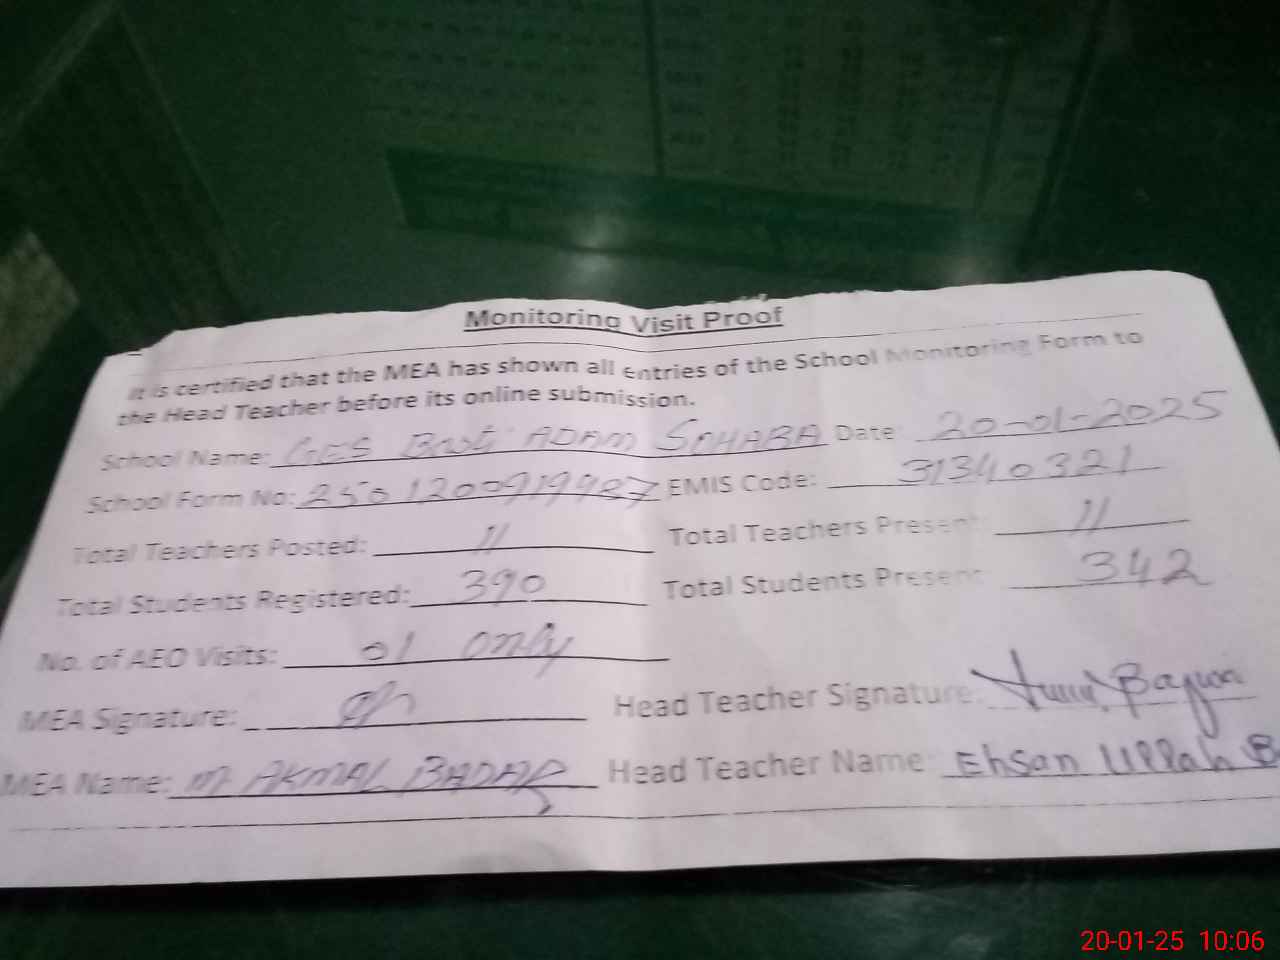 Monitoring Visit Proof
It is certified that the MEA has shown all entries of the School Monitoring Form to
the Head Teacher before its online submission.
School Name: GES Basti ADAM SEHABA Date: 20-01-2025
School Form No: EMIS Code: 31340321
Total Teachers Posted: 11 Total Teachers Present: 11
Total Students Registered: 390 Total Students Present: 342
No. of AEO Visits: 01 only
MEA Signature: Head Teacher Signature:
MEA Name: M AKMAL BADAR Head Teacher Name: Ehsan Ullah B
20-01-25 10:06